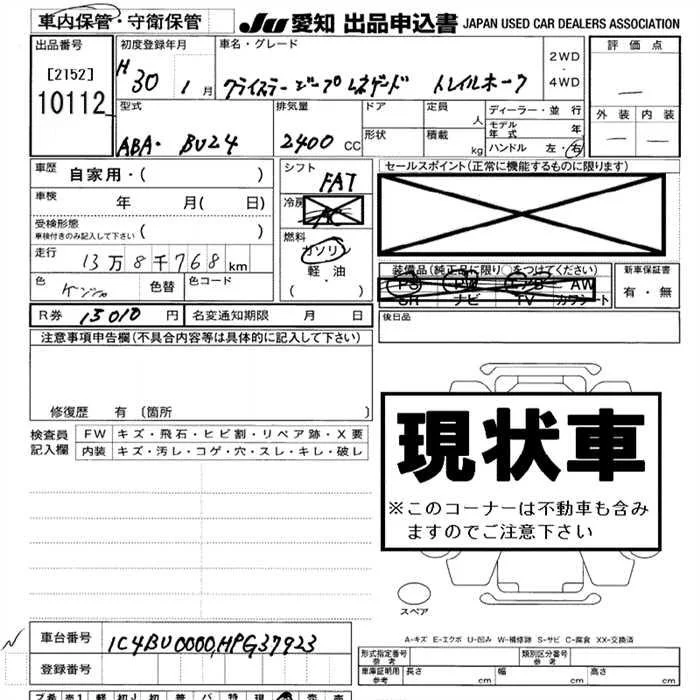 車内保管・守衛保管 JU 愛知 出品申込書 JAPAN USED CAR DEALERS ASSOCIATION
出品番号 初度登録年月 車名・グレード 評価点
[2152] H 30 1月 クライスラー ジープ レネゲード トレイルホーク 2WD・4WD —
10112 外装 内装
型式 排気量 ドア 定員 人 ディーラー・並行
ABA・BU24 2400 CC 形状 積載 kg モデル年式 年 — —
ハンドル 左・右
車歴 自家用・( ) シフト FAT セールスポイント(正常に機能するものに限ります)
車検 年 月( 日) 冷房 AC
受検形態
車検付きのみ記入して下さい ( ) 燃料 ガソリン
走行 13万8千768km 軽・油 装備品(純正品に限り○をつけてください) 新車保証書
色 色替 色コード ( ・ ) PS PW エアB AW 有・無
SR ナビ TV カワシート
R券 13010 円 名変通知期限 月 日 後日品
注意事項申告欄(不具合内容等は具体的に記入して下さい)
修復歴 有 〔箇所 〕
検査員記入欄 FW キズ・飛石・ヒビ割・リペア跡・X要
内装 キズ・汚レ・コゲ・穴・スレ・キレ・破レ
現状車
※このコーナーは不動車も含み
ますのでご注意下さい
スペア
A-キズ E-エクボ U-凹み W-補修跡 S-サビ C-腐食 XX-交換済
車台番号 1C4BU0000,HPG37923
登録番号
形式指定番号 参考 類別区分番号 参考
車庫証明用 参考 長さ cm 幅 cm 高さ cm